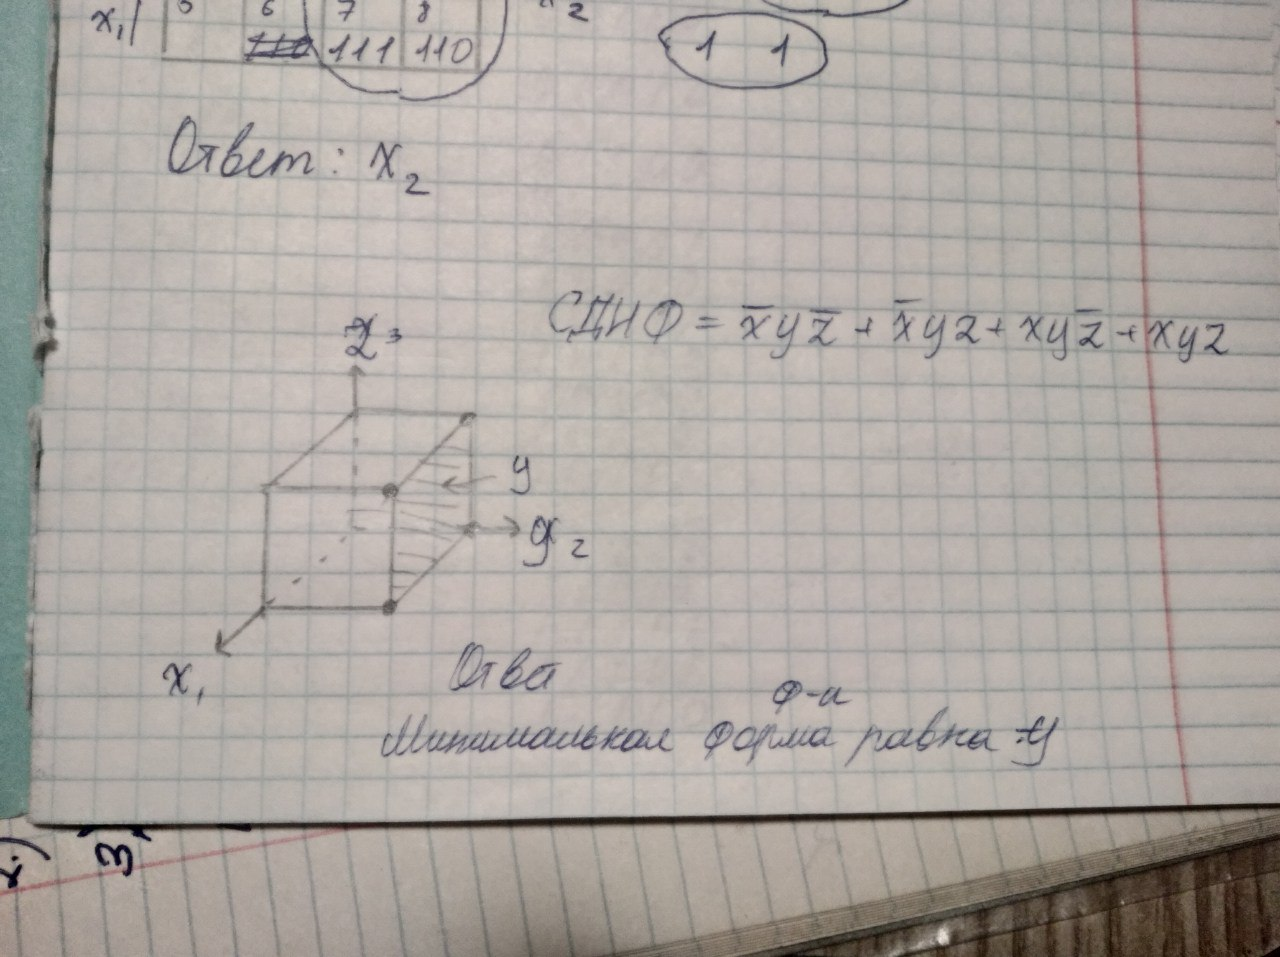 5 6 7 8 x₂
x₁ 111 110 1 1
Ответ: x₂
СДНФ = x̄yz̄ + x̄yz + xyz̄ + xyz
z 3
y
y 2
x₁
Отв
ф-и
Минимальная форма равна y
3)